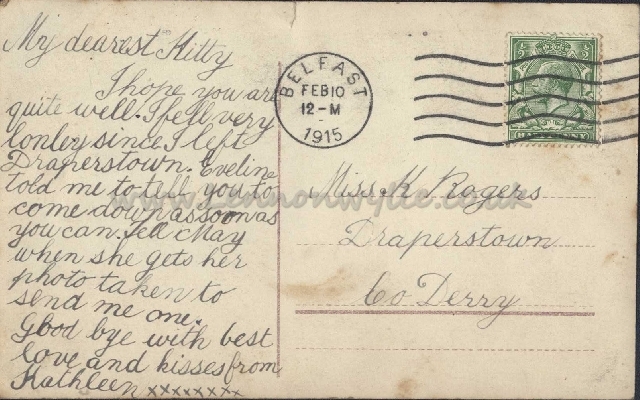 My dearest Kitty
I hope you are
quite well. I fell very
lonley since I left
Draperstown. Eveline
told me to tell you to
come down as soon as
you can. Tell May
when she gets her
photo taken to
send me one.
Good bye with best
love and kisses from
Kathleen xxxxxxxx
BELFAST
FEB 10
12-M
1915
Miss K Rogers
Draperstown
Co Derry